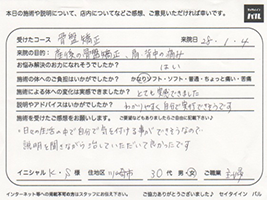 本日の施術や説明について、店内についてなどご感想、ご意見いただければ幸いです。
パル
受けたコース 骨盤矯正 来院日 28・1・4
来院の目的: 産後の骨盤矯正、肩・背中の痛み
お悩み解決のお力になれそうでしたか? はい
施術の体へのご負担はいかがでしたか? かなりソフト・ソフト・普通・ちょっと痛い・苦痛
施術による体への変化は実感できましたか? とても実感できました
説明やアドバイスはいかがでしたか? わかりやすく自分で実行できそうです
施術を受けたご感想をお願いします。
・日々の生活の中で自分で気を付ける事ができそうなので
説明を聞きながら治していただいて良かったです
イニシャル K・S 様 住地区 川崎市 30代 男・女 ご職業 主婦
インターネット等への掲載不可の方はスタッフにお伝え下さい。 ご協力ありがとうございました セイタイイン パル